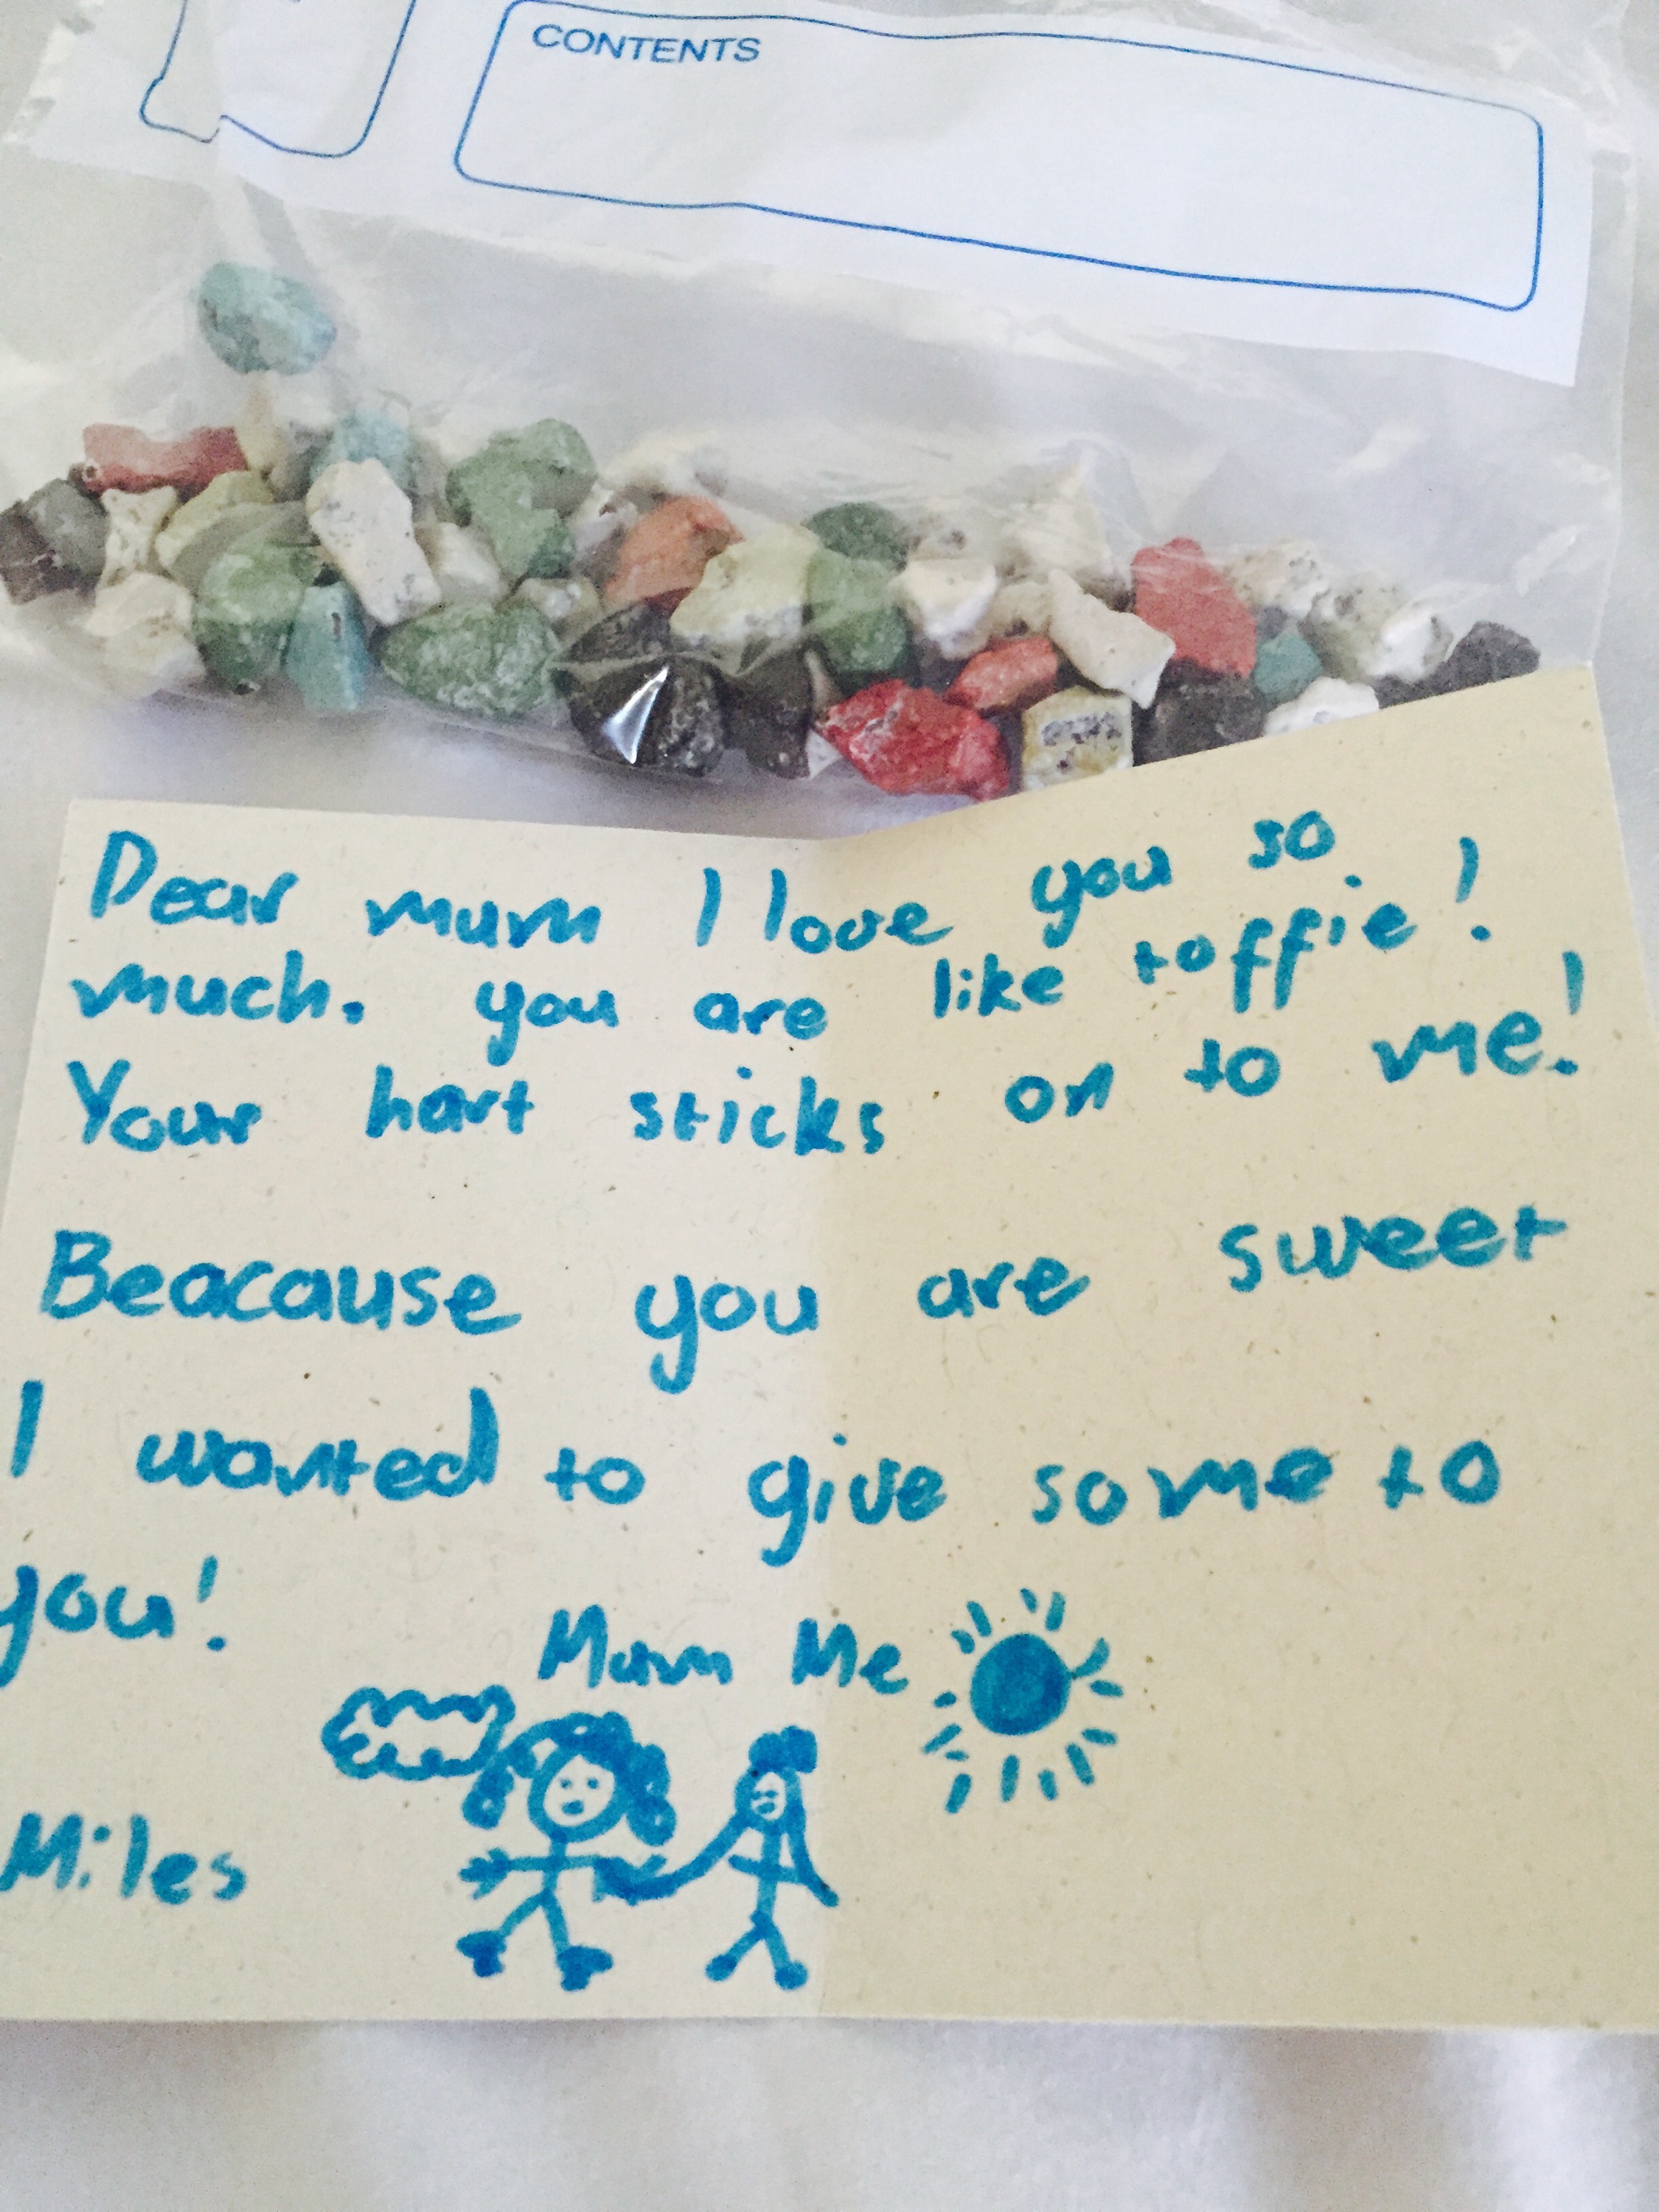 CONTENTS
Dear mum I love you so
much. you are like toffie!
Your hart sticks on to me!
Beacause you are sweet
I wanted to give some to
you!
Mum Me
Miles